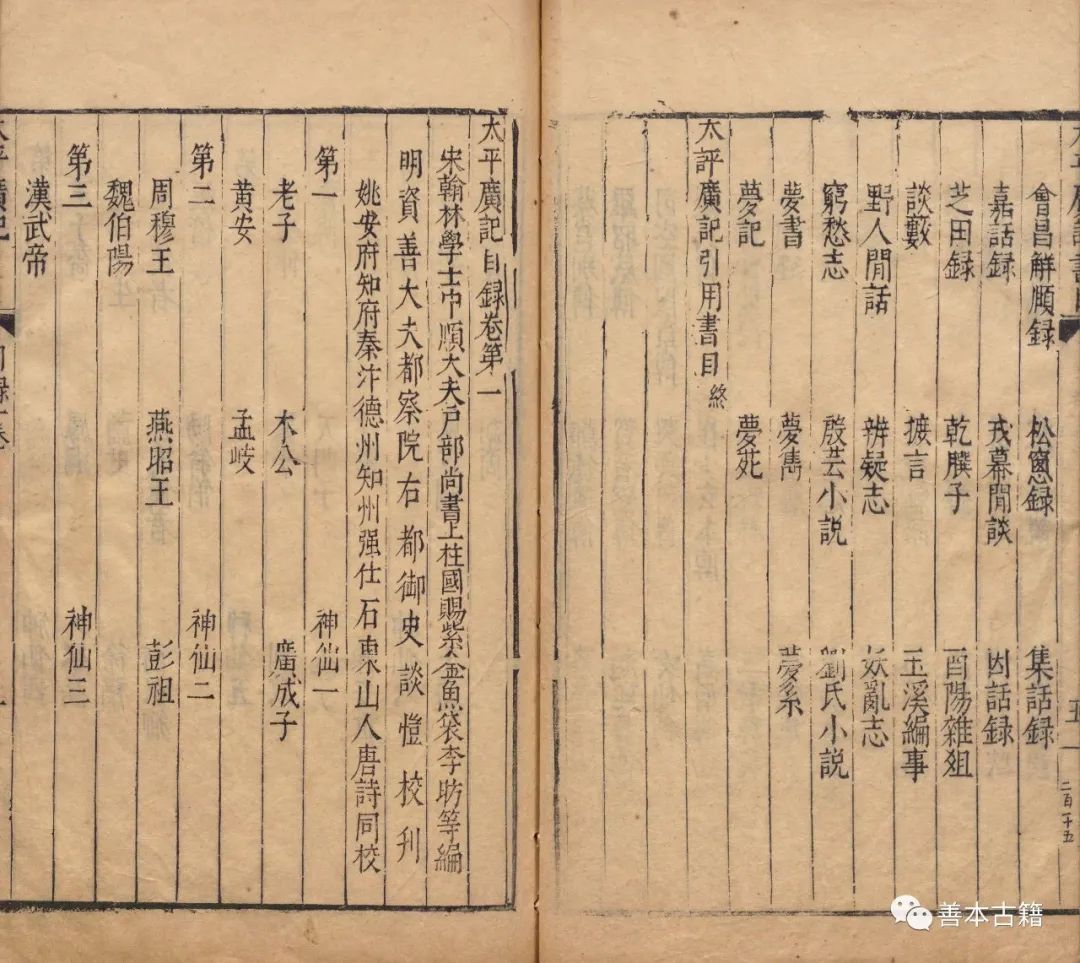 會昌解頤録 松窻録 集話録
嘉話録 戎幕閒談 因話録
芝田録 乾𦠆子 酉陽雜爼
談藪 摭言 玉溪編事
野人閒話 辨疑志 妖亂志
窮愁志 殷芸小説 劉氏小説
夢書 夢雋 夢系
夢記 夢苑
太評廣記引用書目 終
五
二百十五
太平廣記目録卷第一
宋翰林學士中順大夫戸部尚書上柱國賜紫金魚袋李昉等編
明資善大夫都察院右都御史談愷校刋
姚安府知府秦汴德州知州强仕石東山人唐詩同校
第一 神仙一
老子 木公 廣成子
黄安 孟岐
第二 神仙二
周穆王 燕昭王 彭祖
魏伯陽
第三 神仙三
漢武帝
善本古籍